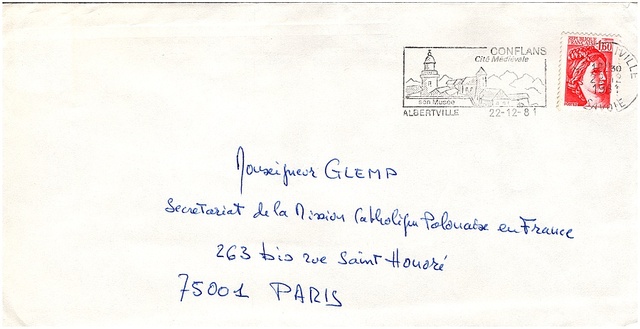 CONFLANS
Cité Médiévale
son Musée
ALBERTVILLE 22-12-81
REPUBLIQUE FRANCAISE 1,60
SAVOIE
Monseigneur GLEMP
Secretariat de la Mission Catholique Polonaise en France
263 bis rue Saint Honoré
75001 PARIS